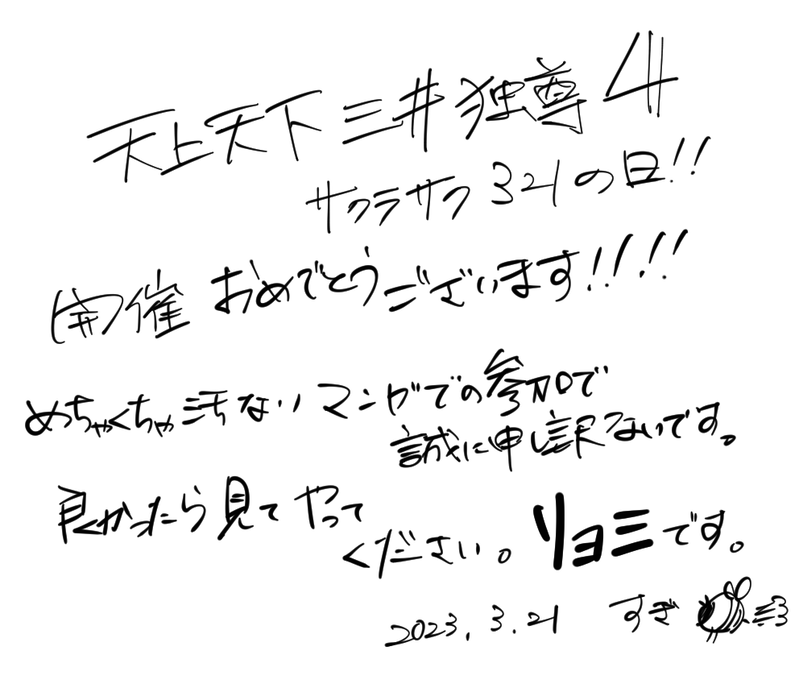 天上天下三井独尊4
サクラサク321の日!!
開催おめでとうございます!!!!
めちゃくちゃ汚ないマンガでの参加で
誠に申し訳ないです。
良かったら見てやって
ください。リョミです。
2023.3.21 すぎ